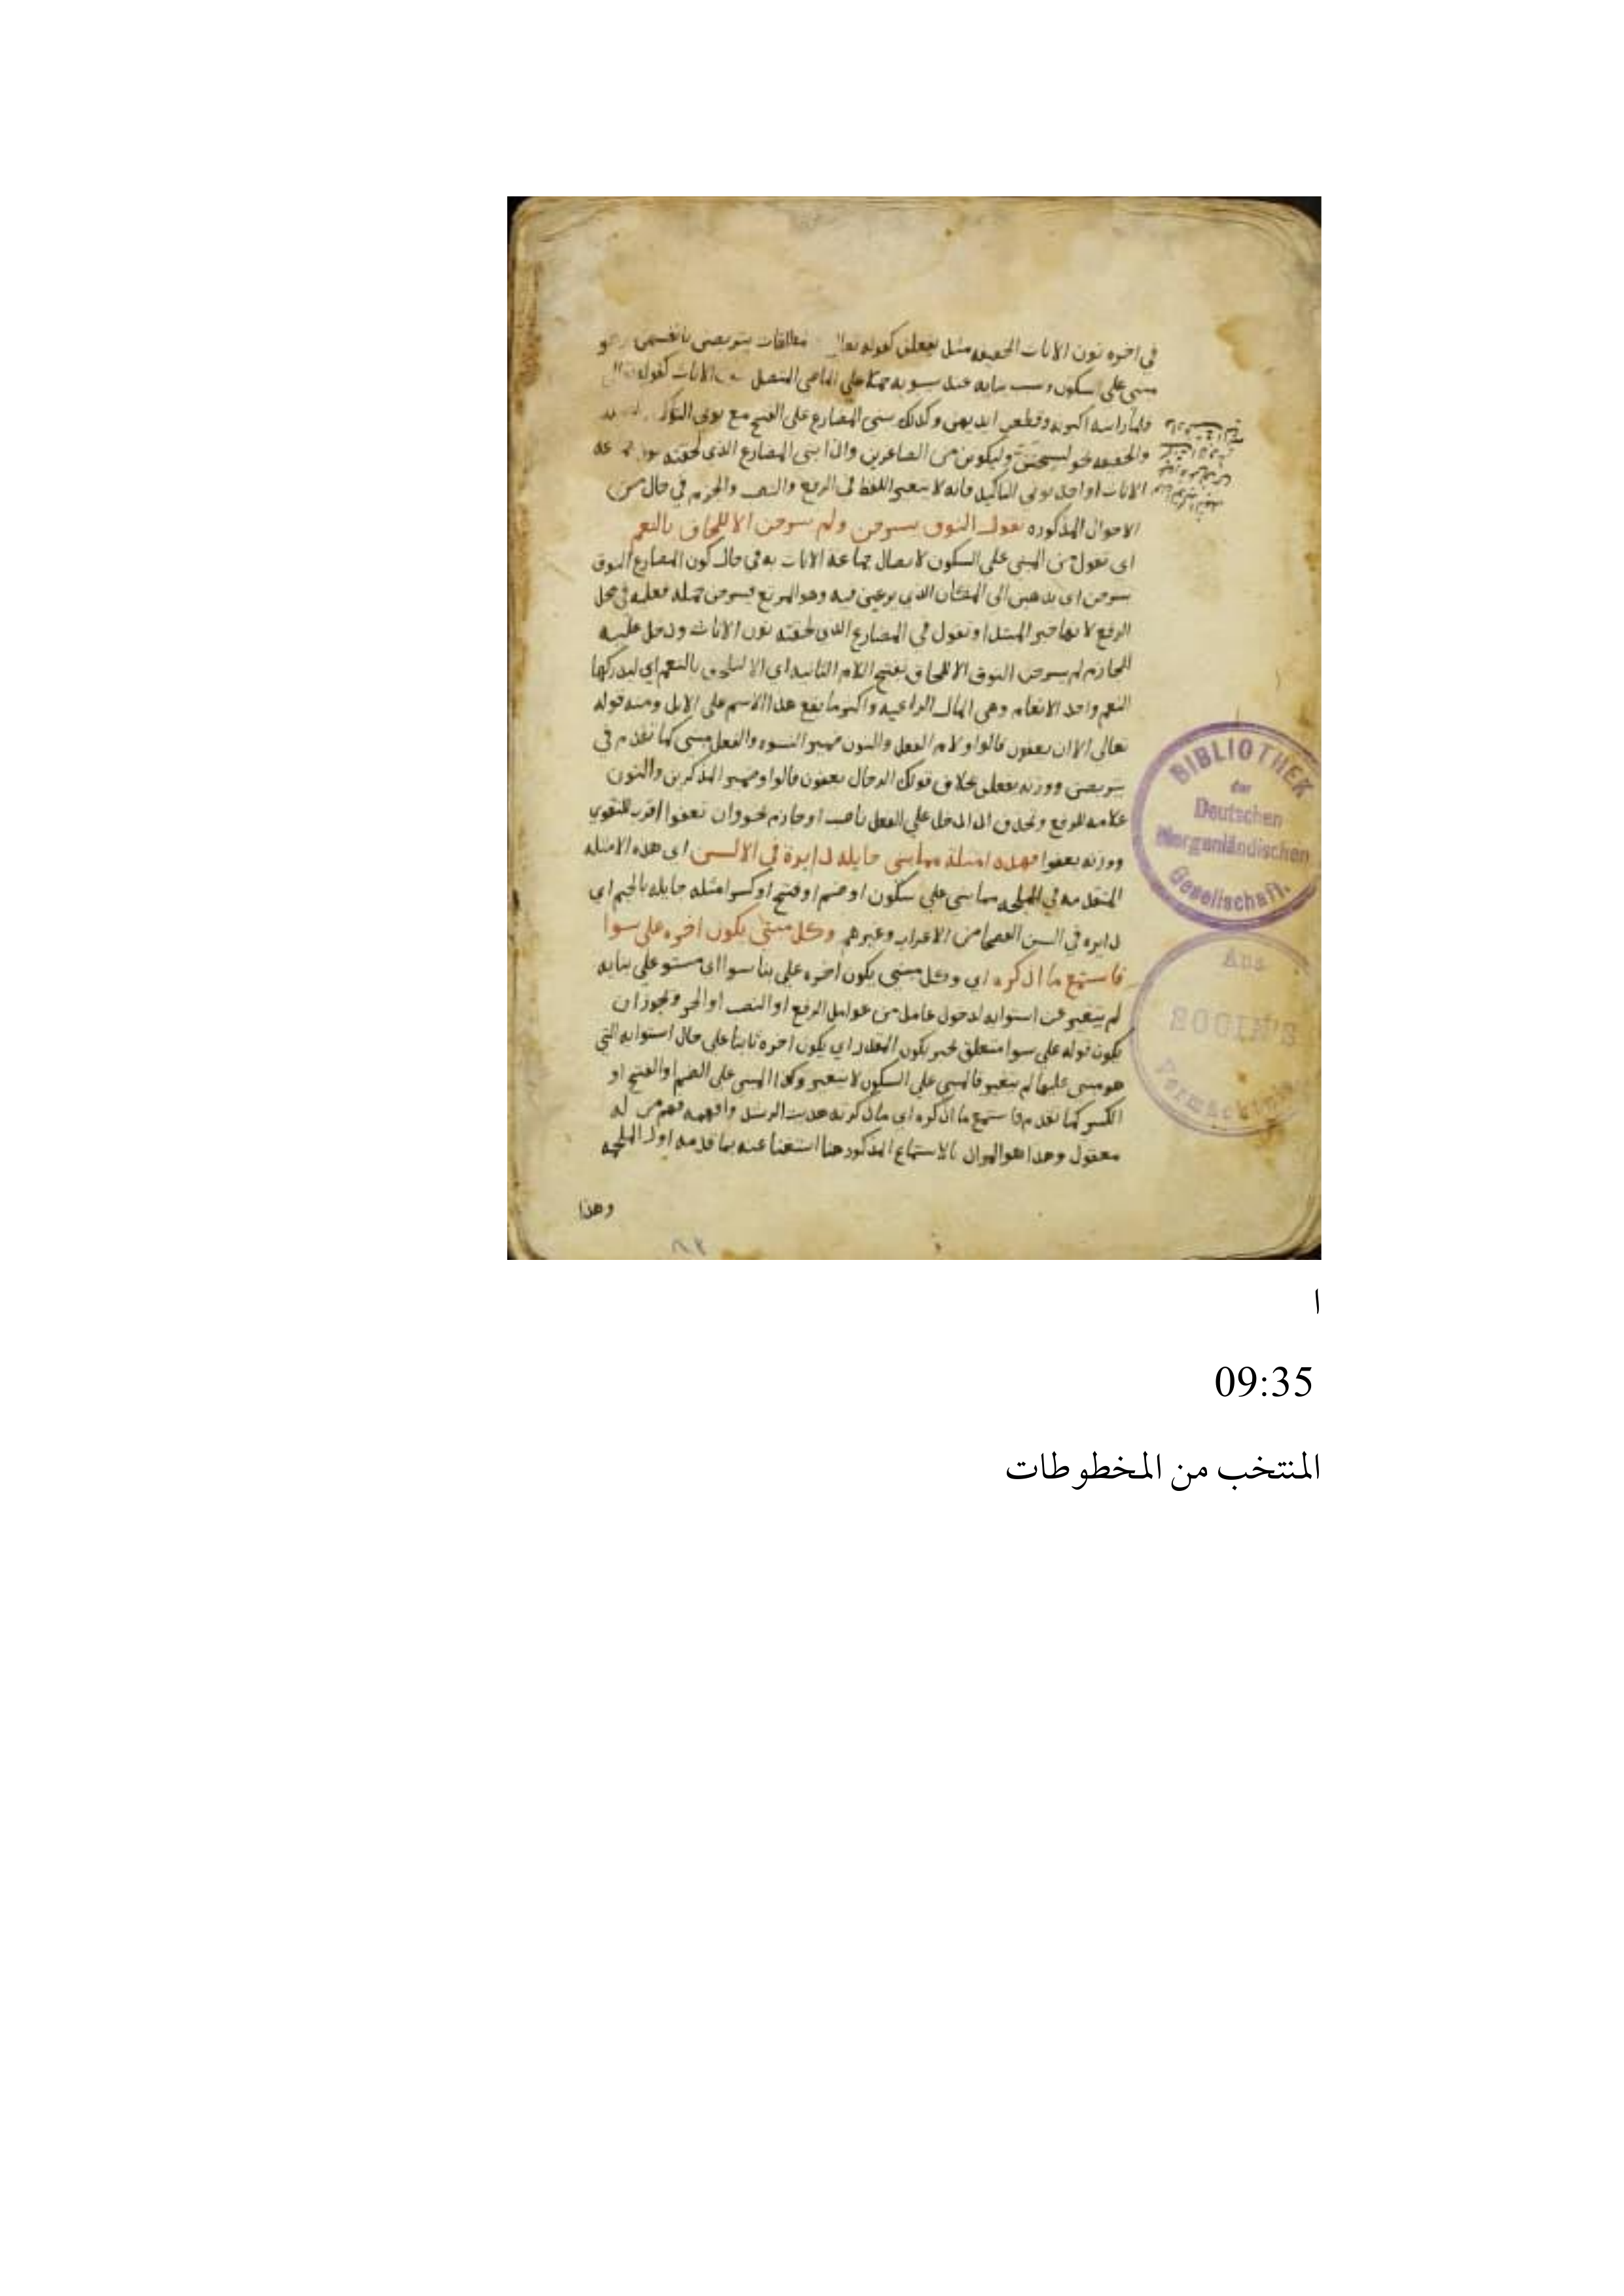 في اخره نون الاناث الخفيفه مثل يفعلن كقوله تعالى والمطلقات يتربصن بانفسهن وهو
مبني على السكون وسبب بنايه عند سيبويه حملا على الماضي المتصل بنون الاناث كقوله تعالى
فلما راينه اكبرنه وقطعن ايديهن وكذلك يبنى المضارع على الفتح مع نوني التوكيد
والخفيفه نحو ليسجنن وليكونن من الصاغرين واذا بني المضارع الذي لحقته نون جماعه
الاناث او احد نوني التاكيد فانه لا يتغير اللفظ في الرفع والنصب والجزم في حال من
الاحوال المذكوره تقول النوق يسرحن ولم يسرحن الا للحاق بالنعم
اي تقول من المبني على السكون لاتصال جماعه الاناث به في حال كون المضارع النوق
يسرحن اي يذهبن الى المكان الذي يرعين فيه وهو المرتع فيسرحن جمله فعليه في محل
الرفع لانها خبر المبتدا وتقول في المضارع الذي لحقته نون الاناث ودخل عليه
الجازم لم يسرحن النوق الا للحاق بفتح اللام الثانيه اي الا لتلحق بالنعم اي ليدركها
النعم واحد الانعام وهي المال الراعيه واكثر ما يقع هذا الاسم على الابل ومنه قوله
تعالى الا ان يعفون فالواو لام الفعل والنون ضمير النسوه والفعل مبني كما تقدم في
يتربصن ووزنه يفعلن بخلاف قولك الرجال يعفون فالواو ضمير المذكرين والنون
علامه للرفع وتحذف اذا دخل على الفعل ناصب او جازم نحو وان تعفوا اقرب للتقوى
ووزنه يعفوا فهذه امثلة مما بني جايله دايرة في الالسن اي هذه الامثله
المتقدمه في الملحه مما بني على سكون او ضم او فتح او كسر امثله جايله بالجيم اي
دايره في السن الفصحا من الاعراب وغيرهم وكل مبني يكون اخره على سوا
فاستمع ما اذكره اي وكل مبني يكون اخره على بنا سوا اي مستو على بنايه
لم يتغير عن استوايه لدخول عامل من عوامل الرفع او النصب او الجر ويجوز ان
يكون قوله على سوا متعلق بخبر يكون المقدر اي يكون اخره ثابتا على حال استوايه التي
هو مبني عليها لم يتغير فالمبني على السكون لا يتغير وكذا المبني على الضم او الفتح او
الكسر كما تقدم فاستمع ما اذكره اي ما ذكرته هديت الرشد وافهمه فهم من له
معقول وهذا هو المراد بالاستماع المذكور هنا استغنا عنه بما قدمه اول الملحه
وهذا
BIBLIOTHEK
der
Deutschen
Morgenländischen
Gesellschaft.
Aus
SOCIN'S
Vermächtnis
ا
09:35
المنتخب من المخطوطات